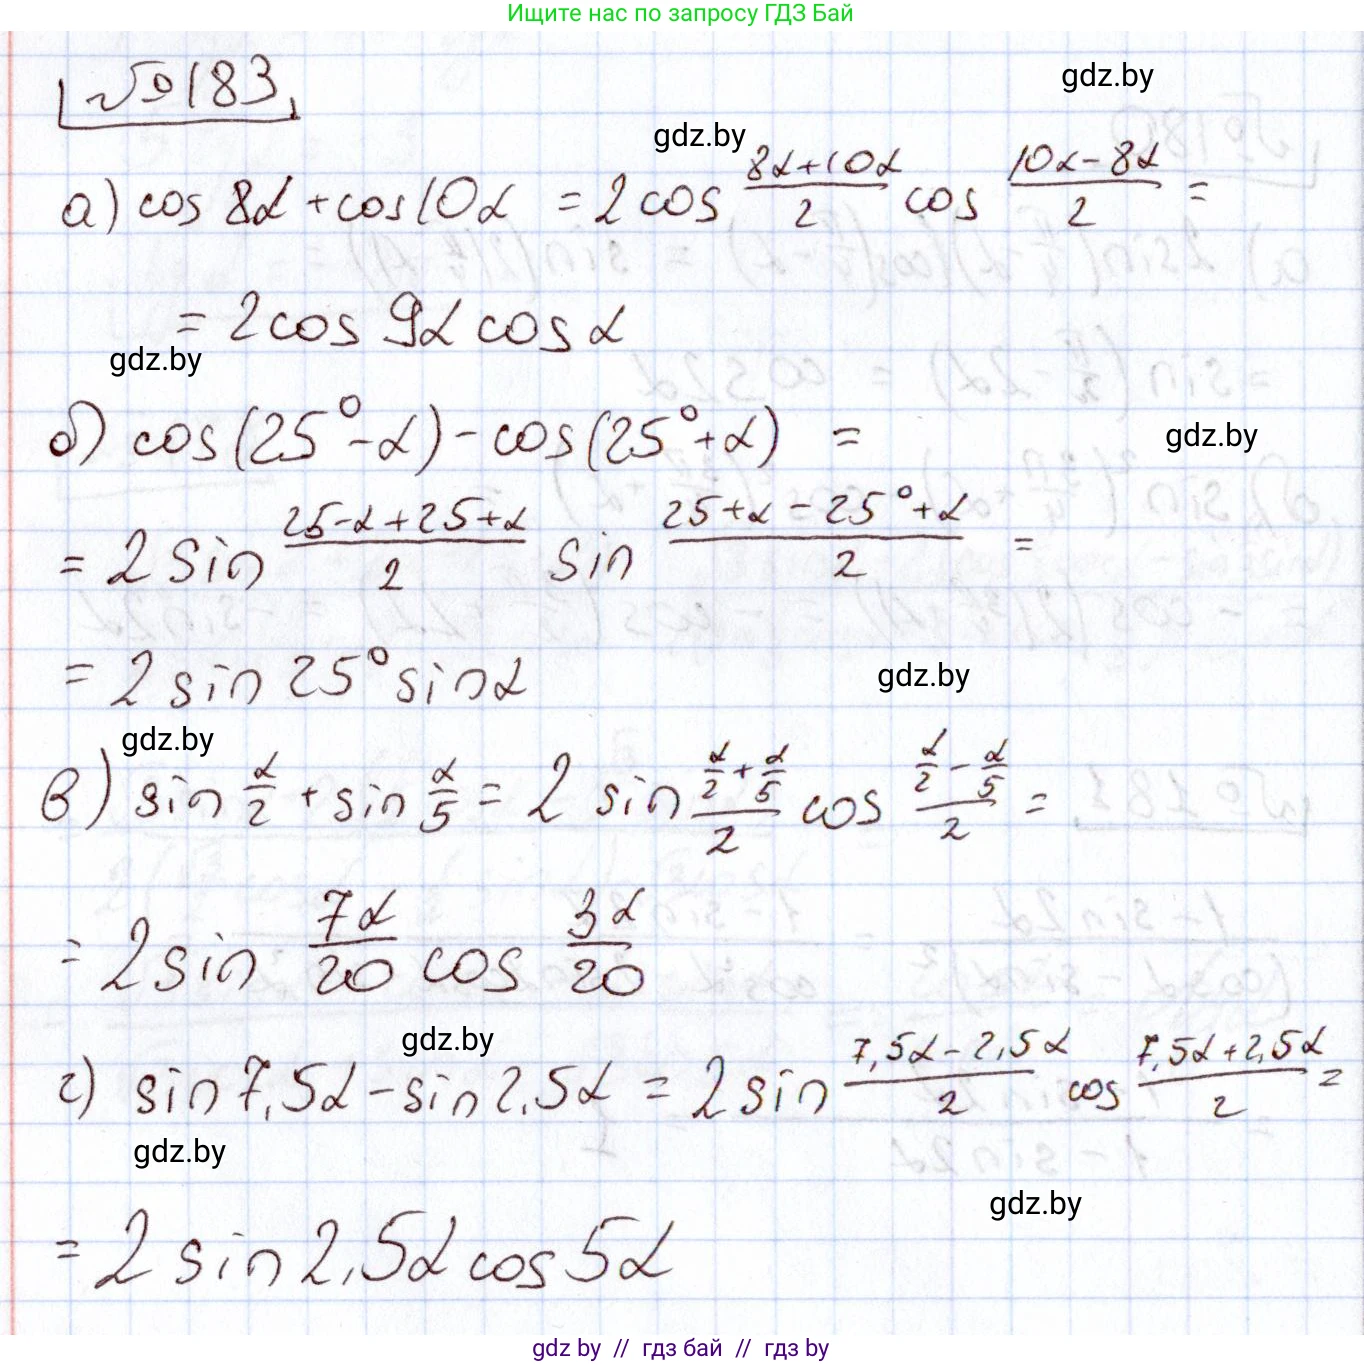 Ищите нас по запросу ГДЗ Бай
№183
gdz.by
gdz.by
а) cos 8α + cos 10α = 2 cos (8α+10α)/2 cos (10α-8α)/2 =
= 2 cos 9α cos α
gdz.by
б) cos(25°-α) - cos(25°+α) =
gdz.by
= 2 sin (25-α+25+α)/2 sin (25+α-25°+α)/2 =
= 2 sin 25° sin α
gdz.by
gdz.by
в) sin α/2 + sin α/5 = 2 sin (α/2+α/5)/2 cos (α/2-α/5)/2 =
= 2 sin 7α/20 cos 3α/20
gdz.by
г) sin 7,5α - sin 2,5α = 2 sin (7,5α-2,5α)/2 cos (7,5α+2,5α)/2 =
gdz.by
gdz.by
= 2 sin 2,5α cos 5α
gdz.by // гдз бай // гдз by